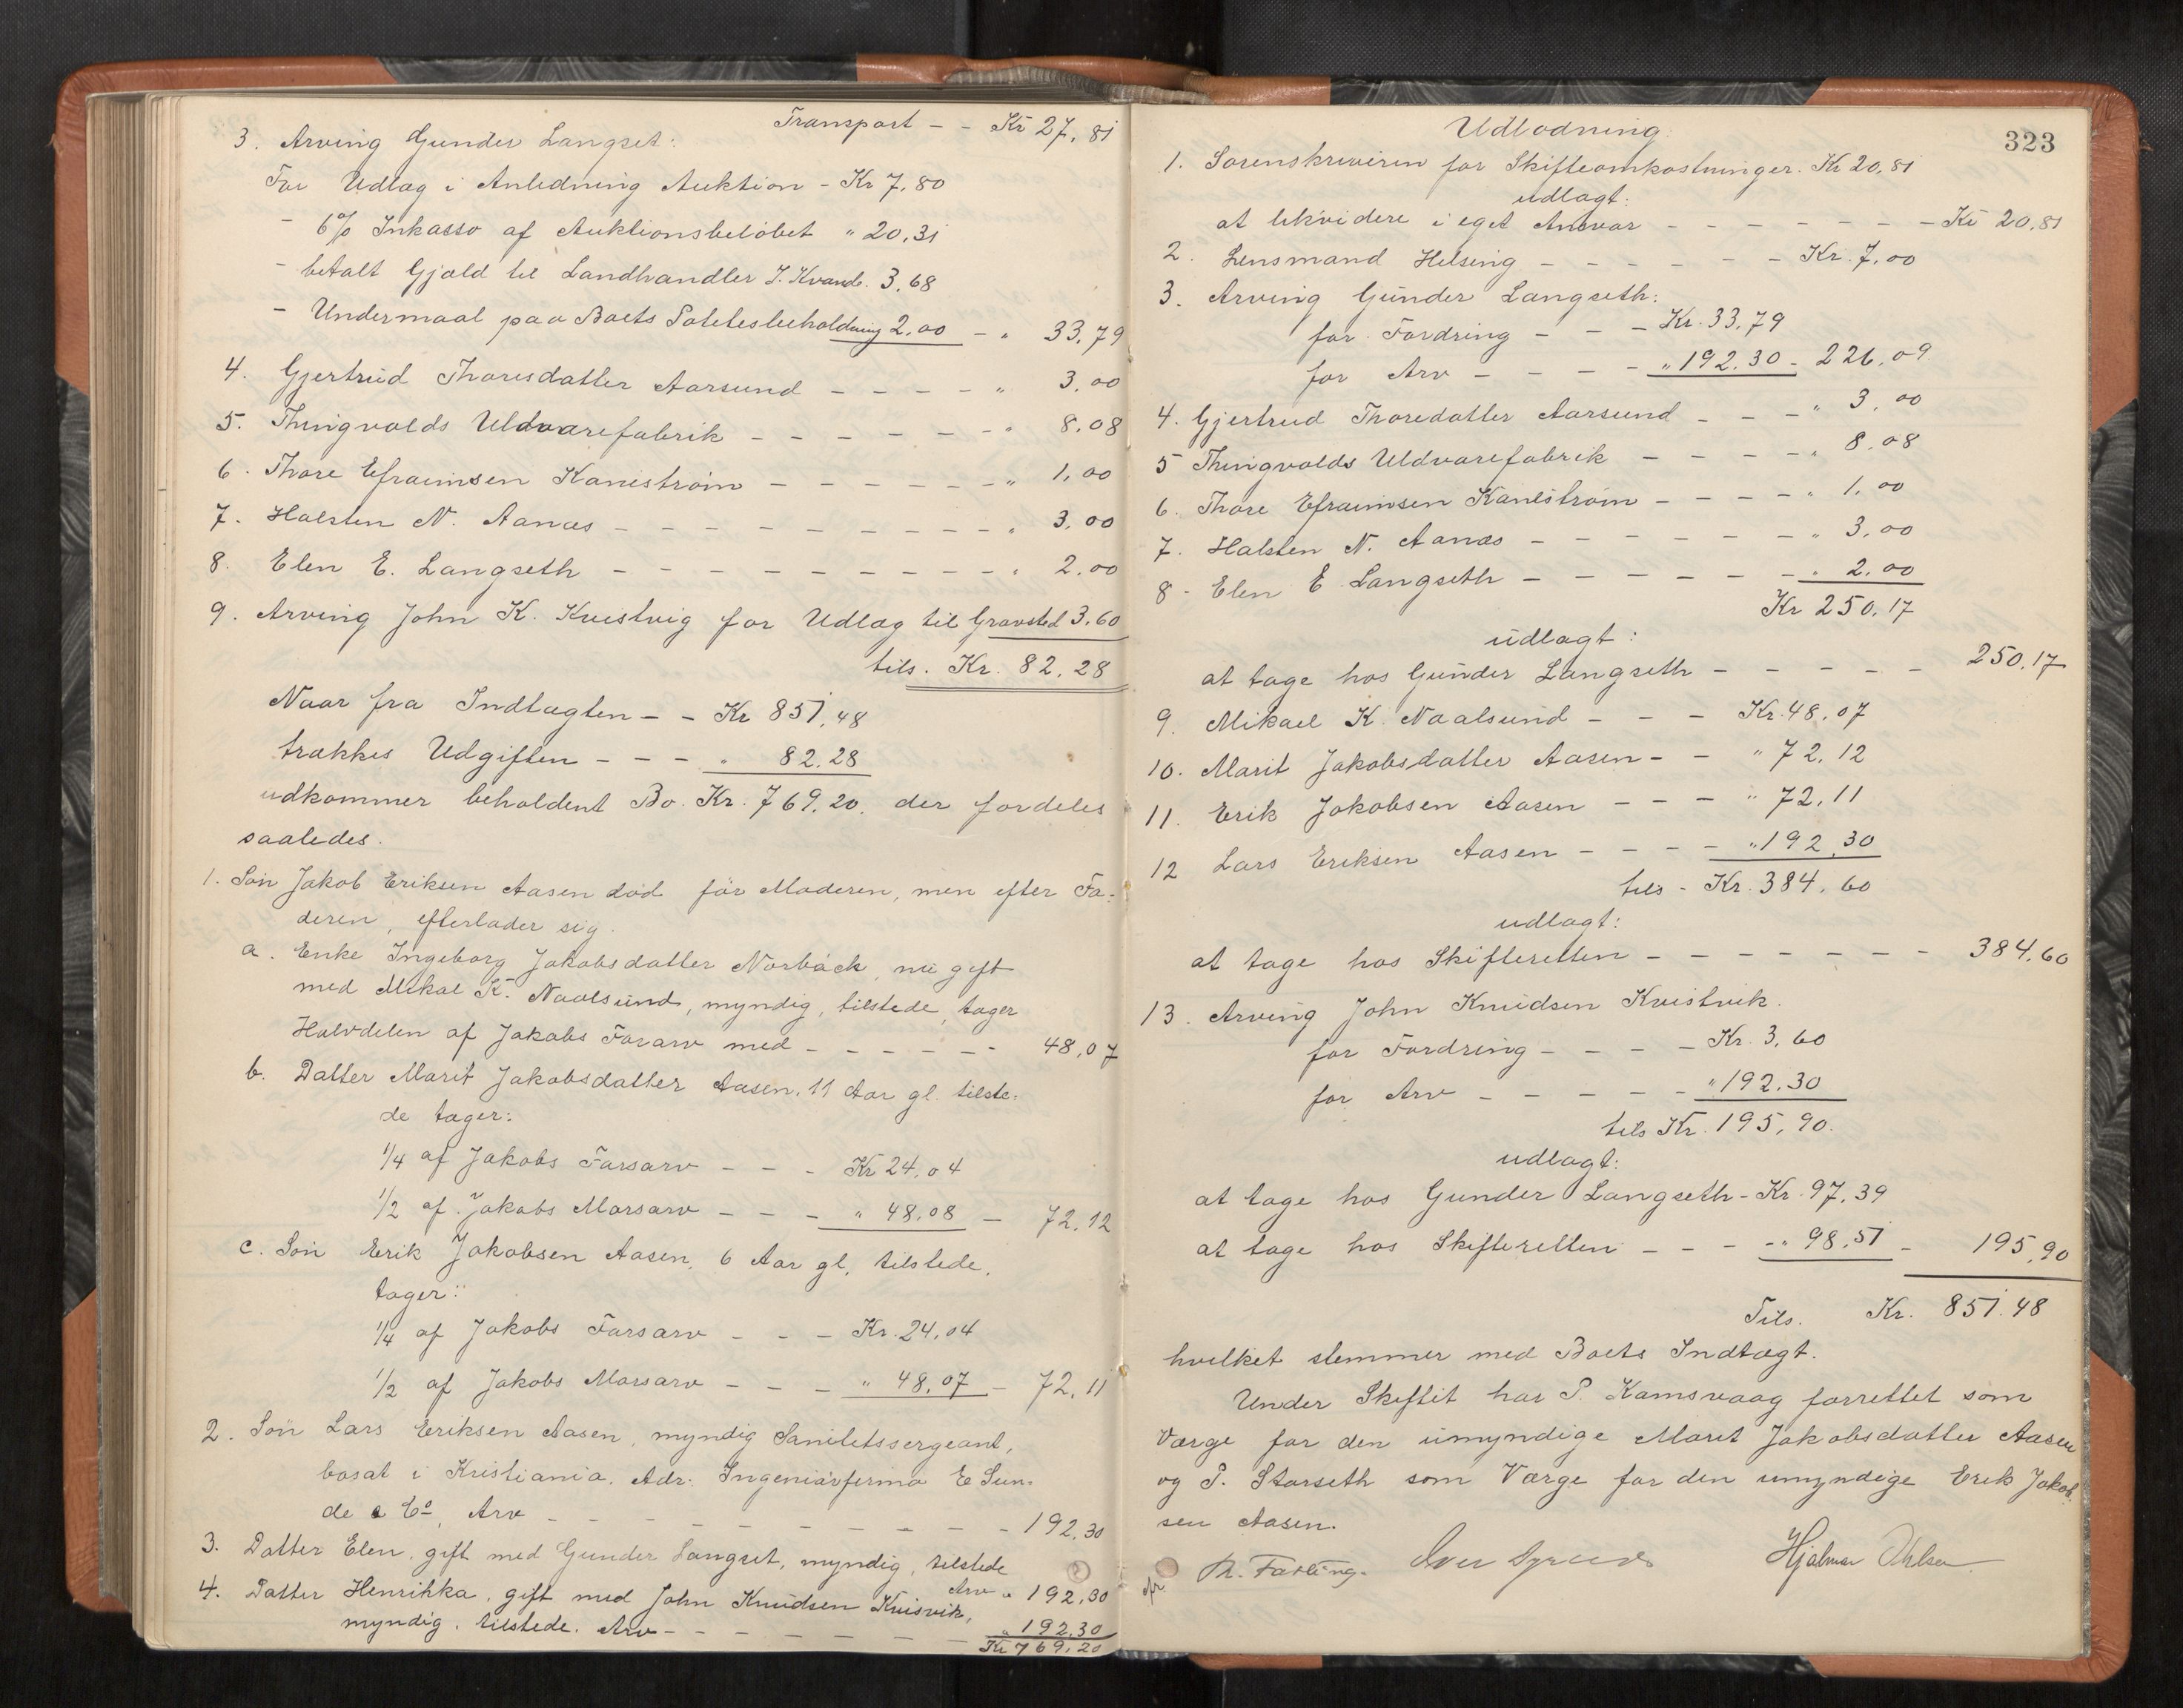 Transport - - Kr 27,81
3. Arving Gunder Langset:
For Udlæg i Anledning Auktion - Kr 7,80
- 6% Inkasso af Auktionsbeløbet " 20,31
- betalt Gjæld til Landhandler J. Kvande. 3,68
- Undermaal paa Boets Potetesbeholdning 2,00 - " 33,79
4. Gjertrud Thoresdatter Aarsund - - - - " 3,00
5. Thingvolds Uldvarefabrik - - - - - - " 8,08
6. Thore Efraimsen Kanestrøm - - - - - - " 1,00
7. Halsten N. Aanæs - - - - - - - - - " 3,00
8. Elen E. Langseth - - - - - - - - - " 2,00
9. Arving John K. Kvistvig for Udlæg til Gravsted 3,60
tils. Kr. 82,28
Naar fra Indtægten - - Kr 851,48
trækkes Udgiften - - - " 82,28
udkommer beholdent Bo. Kr. 769,20, der fordeles
saaledes.
1. Søn Jakob Eriksen Aasen død før Moderen, men efter Fa-
deren, efterlader sig.
a. Enke Ingeborg Jakobsdatter Norbäck, nu gift
med Mikal K. Naalsund, myndig, tilstede, tager
Halvdelen af Jakobs Farsarv med - - - - - - 48,07
b. Datter Marit Jakobsdatter Aasen, 11 Aar gl. tilste-
de tager:
1/4 af Jakobs Farsarv - - - Kr 24,04
1/2 af Jakobs Morsarv - - - " 48,08 - 72,12
c. Søn Erik Jakobsen Aasen, 6 Aar gl, tilstede,
tager:
1/4 af Jakobs Farsarv - - - Kr. 24,04
1/2 af Jakobs Morsarv - - - " 48,07 - 72,11
2. Søn Lars Eriksen Aasen, myndig Sanitetssergeant,
bosat i Kristiania. Adr. Ingeniørfirma E Sun-
de & Co, Arv - - - - - - - - - 192,30
3. Datter Elen, gift med Gunder Langset, myndig, tilstede
Arv " 192,30
4. Datter Henrikka, gift med John Knudsen Kvisvik,
myndig, tilstede. Arv - - - - - - - " 192,30
Kr 769,20
323
Udlodning.
1. Sorenskriveren for Skifteomkostninger. Kr 20,81
udlagt:
at likvidere i eget Ansvar - - - - - - - Kr 20,81
2. Lensmand Helsing - - - - - - Kr. 7,00
3. Arving Gunder Langseth:
for Fordring - - - Kr. 33,79
for Arv - - - - " 192,30 - 226,09
4. Gjertrud Thoredatter Aarsund - - - " 3,00
5 Thingvolds Uldvarefabrik - - - - " 8,08
6. Thore Efraimsen Kanestrøm - - - - " 1,00
7. Halsten N. Aanæs - - - - - - " 3,00
8 - Elen E Langseth - - - - - - " 2,00
Kr 250,17
udlagt:
at tage hos Gunder Langseth - - - - - 250,17
9. Mikael K. Naalsund - - - Kr. 48,07
10. Marit Jakobsdatter Aasen - - " 72,12
11. Erik Jakobsen Aasen - - - " 72,11
12 Lars Eriksen Aasen - - - - " 192,30
tils - Kr. 384,60
udlagt:
at tage hos Skifteretten - - - - - - - 384,60
13. Arving John Knudsen Kvistvik.
for Fordring - - - - Kr. 3,60
for Arv - - - - - " 192,30
tils Kr. 195,90.
udlagt:
at tage hos Gunder Langseth - Kr. 97,39
at tage hos Skifteretten - - - " 98,51 - 195,90
Tils. Kr. 851.48
hvilket stemmer med Boets Indtægt.
Under Skiftet har P. Kamsvaag forrettet som
Værge for den umyndige Marit Jakobsdatter Aasen
og P. Storseth som Værge for den umyndige Erik Jakob-
sen Aasen.
Hjalmar Ohlsen